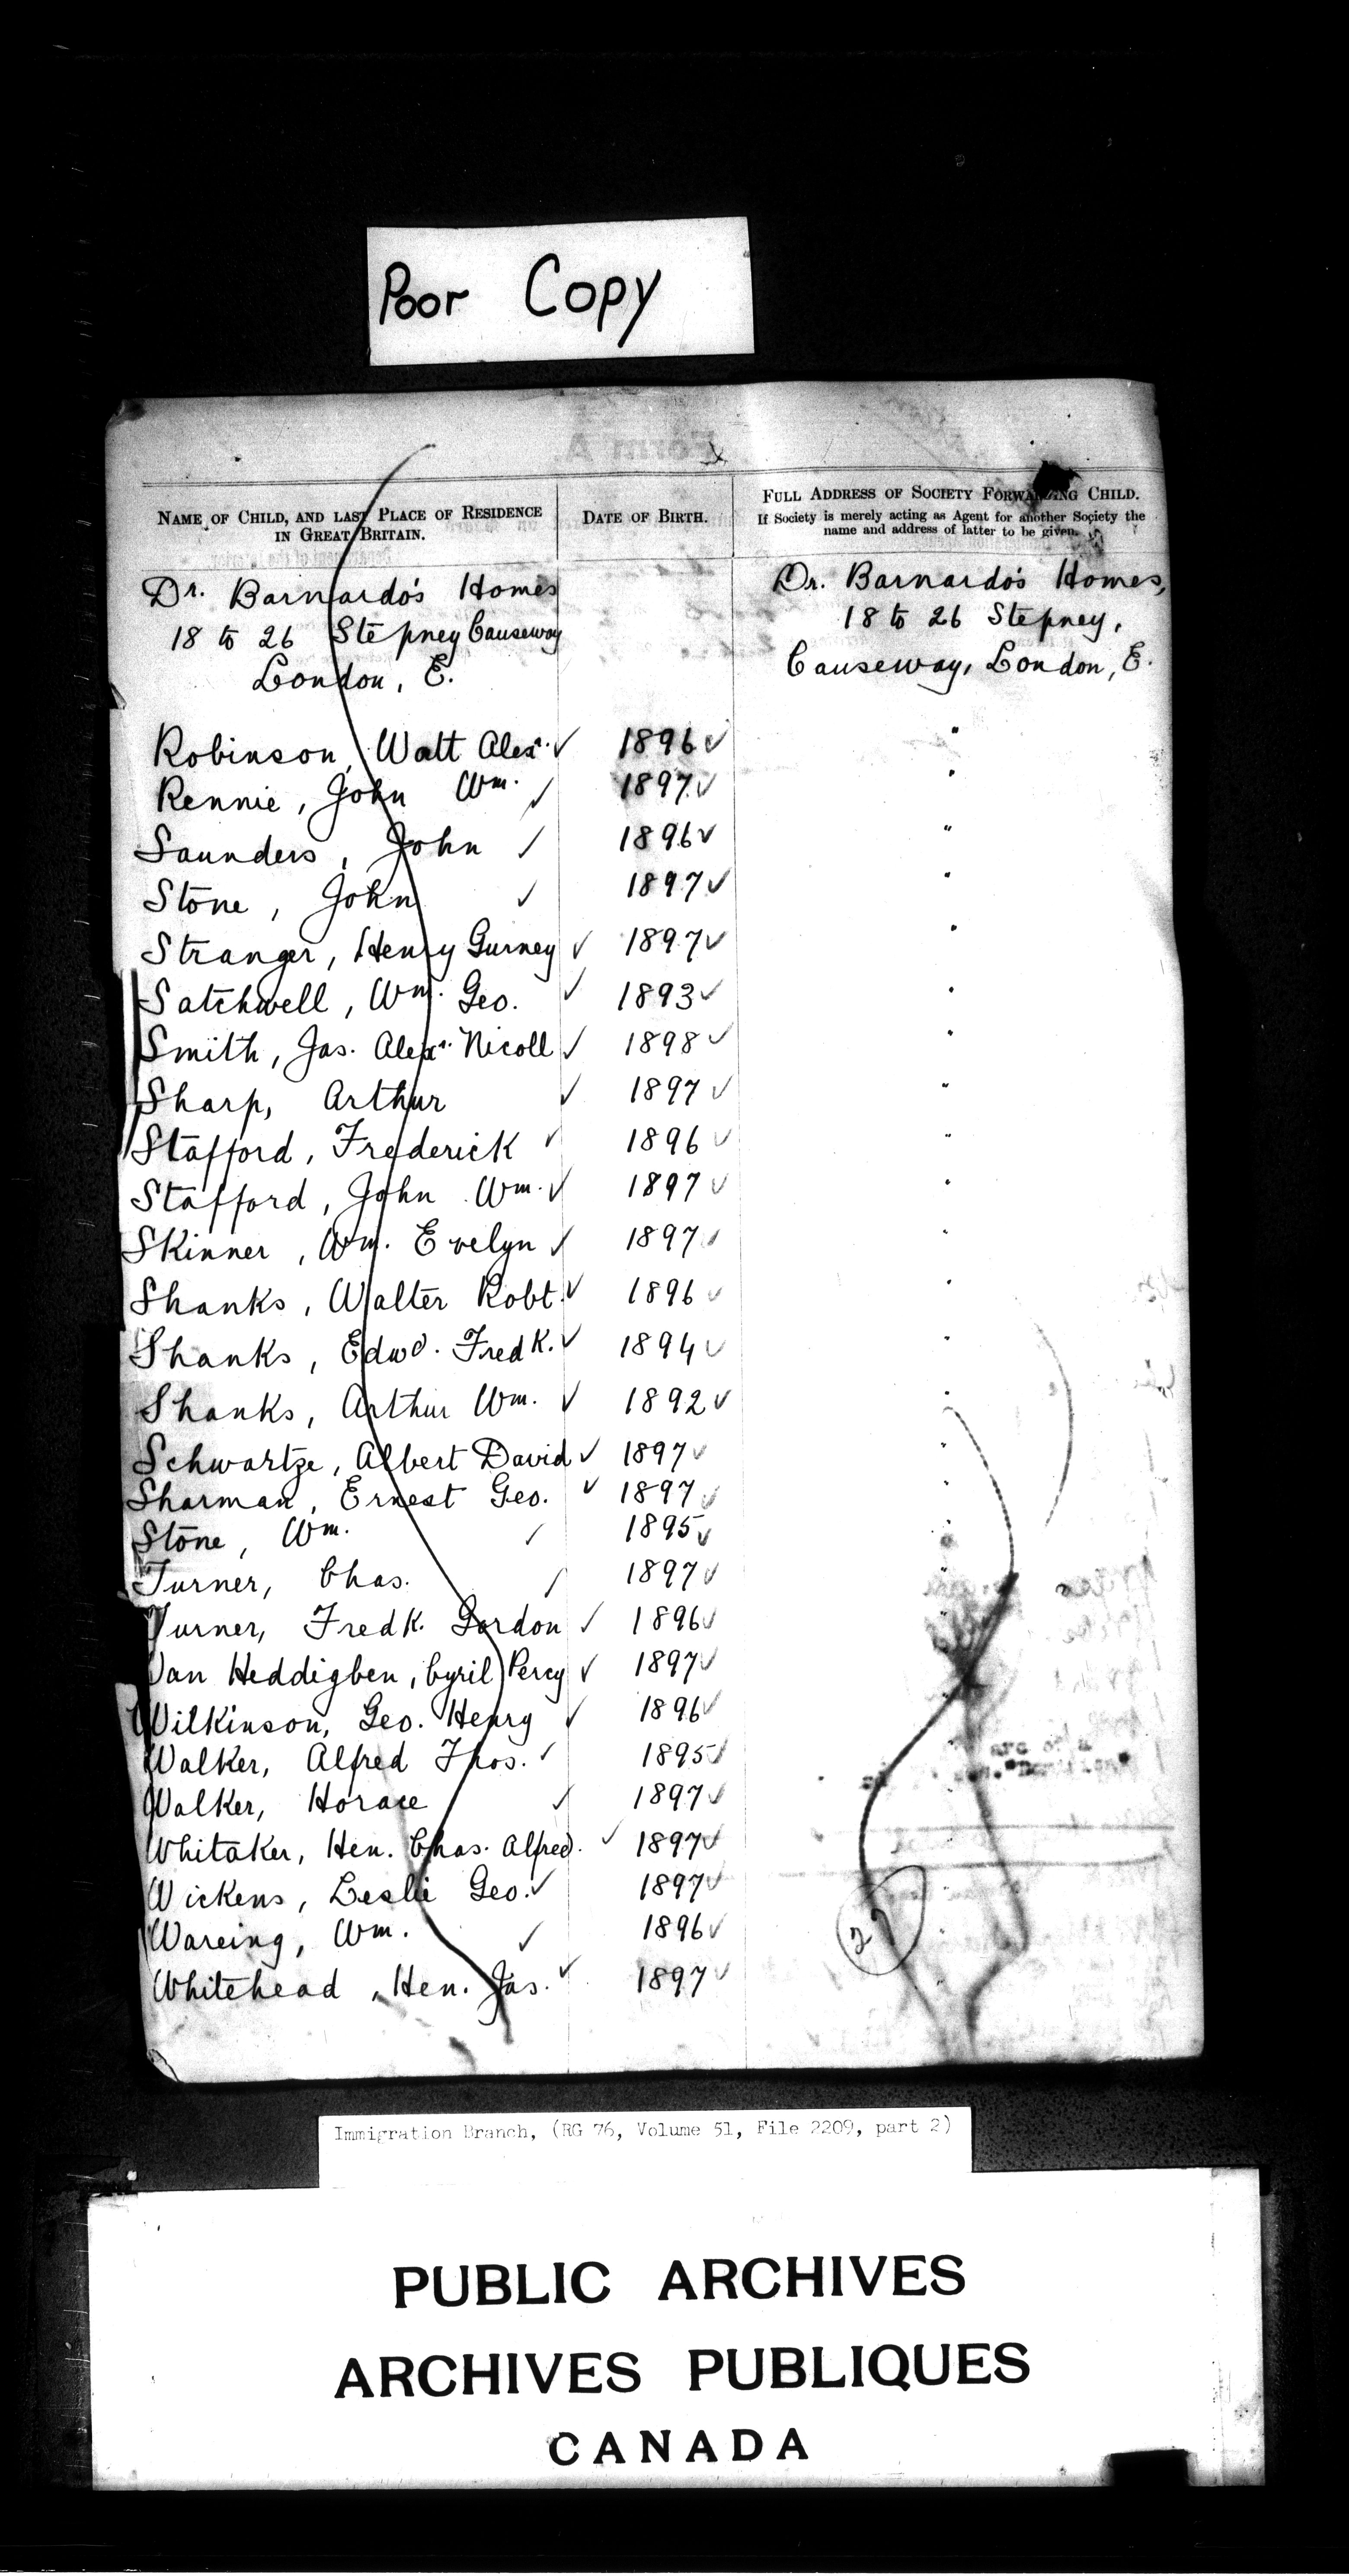 Poor Copy
NAME OF CHILD, AND LAST PLACE OF RESIDENCE
IN GREAT BRITAIN.
DATE OF BIRTH.
FULL ADDRESS OF SOCIETY FORWARDING CHILD.
If Society is merely acting as Agent for another Society the
name and address of latter to be given.
Dr. Barnardo's Homes
18 to 26 Stepney Causeway
London, E.
Dr. Barnardo's Homes,
18 to 26 Stepney,
Causeway, London, E.
Robinson, Walt Alexr. ✓ 1896 ✓ "
Rennie, John Wm. ✓ 1897 ✓ "
Saunders, John ✓ 1896 ✓ "
Stone, John ✓ 1897 ✓ "
Stranger, Henry Gurney ✓ 1897 ✓ "
Satchwell, Wm. Geo. ✓ 1893 ✓ "
Smith, Jas. Alexr. Nicoll ✓ 1898 ✓ "
Sharp, Arthur ✓ 1897 ✓ "
Stafford, Frederick ✓ 1896 ✓ "
Stafford, John Wm. ✓ 1897 ✓ "
Skinner, Wm. Evelyn ✓ 1897 ✓ "
Shanks, Walter Robt. ✓ 1896 ✓ "
Shanks, Edwd. Fredk. ✓ 1894 ✓ "
Shanks, Arthur Wm. ✓ 1892 ✓ "
Schwartze, Albert David ✓ 1897 ✓ "
Sharman, Ernest Geo. ✓ 1897 ✓ "
Stone, Wm. ✓ 1895 ✓ "
Turner, Chas. ✓ 1897 ✓ "
Turner, Fredk. Gordon ✓ 1896 ✓ "
Van Heddigben, Cyril Percy ✓ 1897 ✓
Wilkinson, Geo. Henry ✓ 1896 ✓
Walker, Alfred Thos. ✓ 1895 ✓
Walker, Horace ✓ 1897 ✓
Whitaker, Hen. Chas. Alfred. ✓ 1897 ✓
Wickens, Leslie Geo. ✓ 1897 ✓ "
Wareing, Wm. ✓ 1896 ✓ "
Whitehead, Hen. Jas. ✓ 1897 ✓ "
27
Immigration Branch, (RG 76, Volume 51, File 2209, part 2)
PUBLIC ARCHIVES
ARCHIVES PUBLIQUES
CANADA